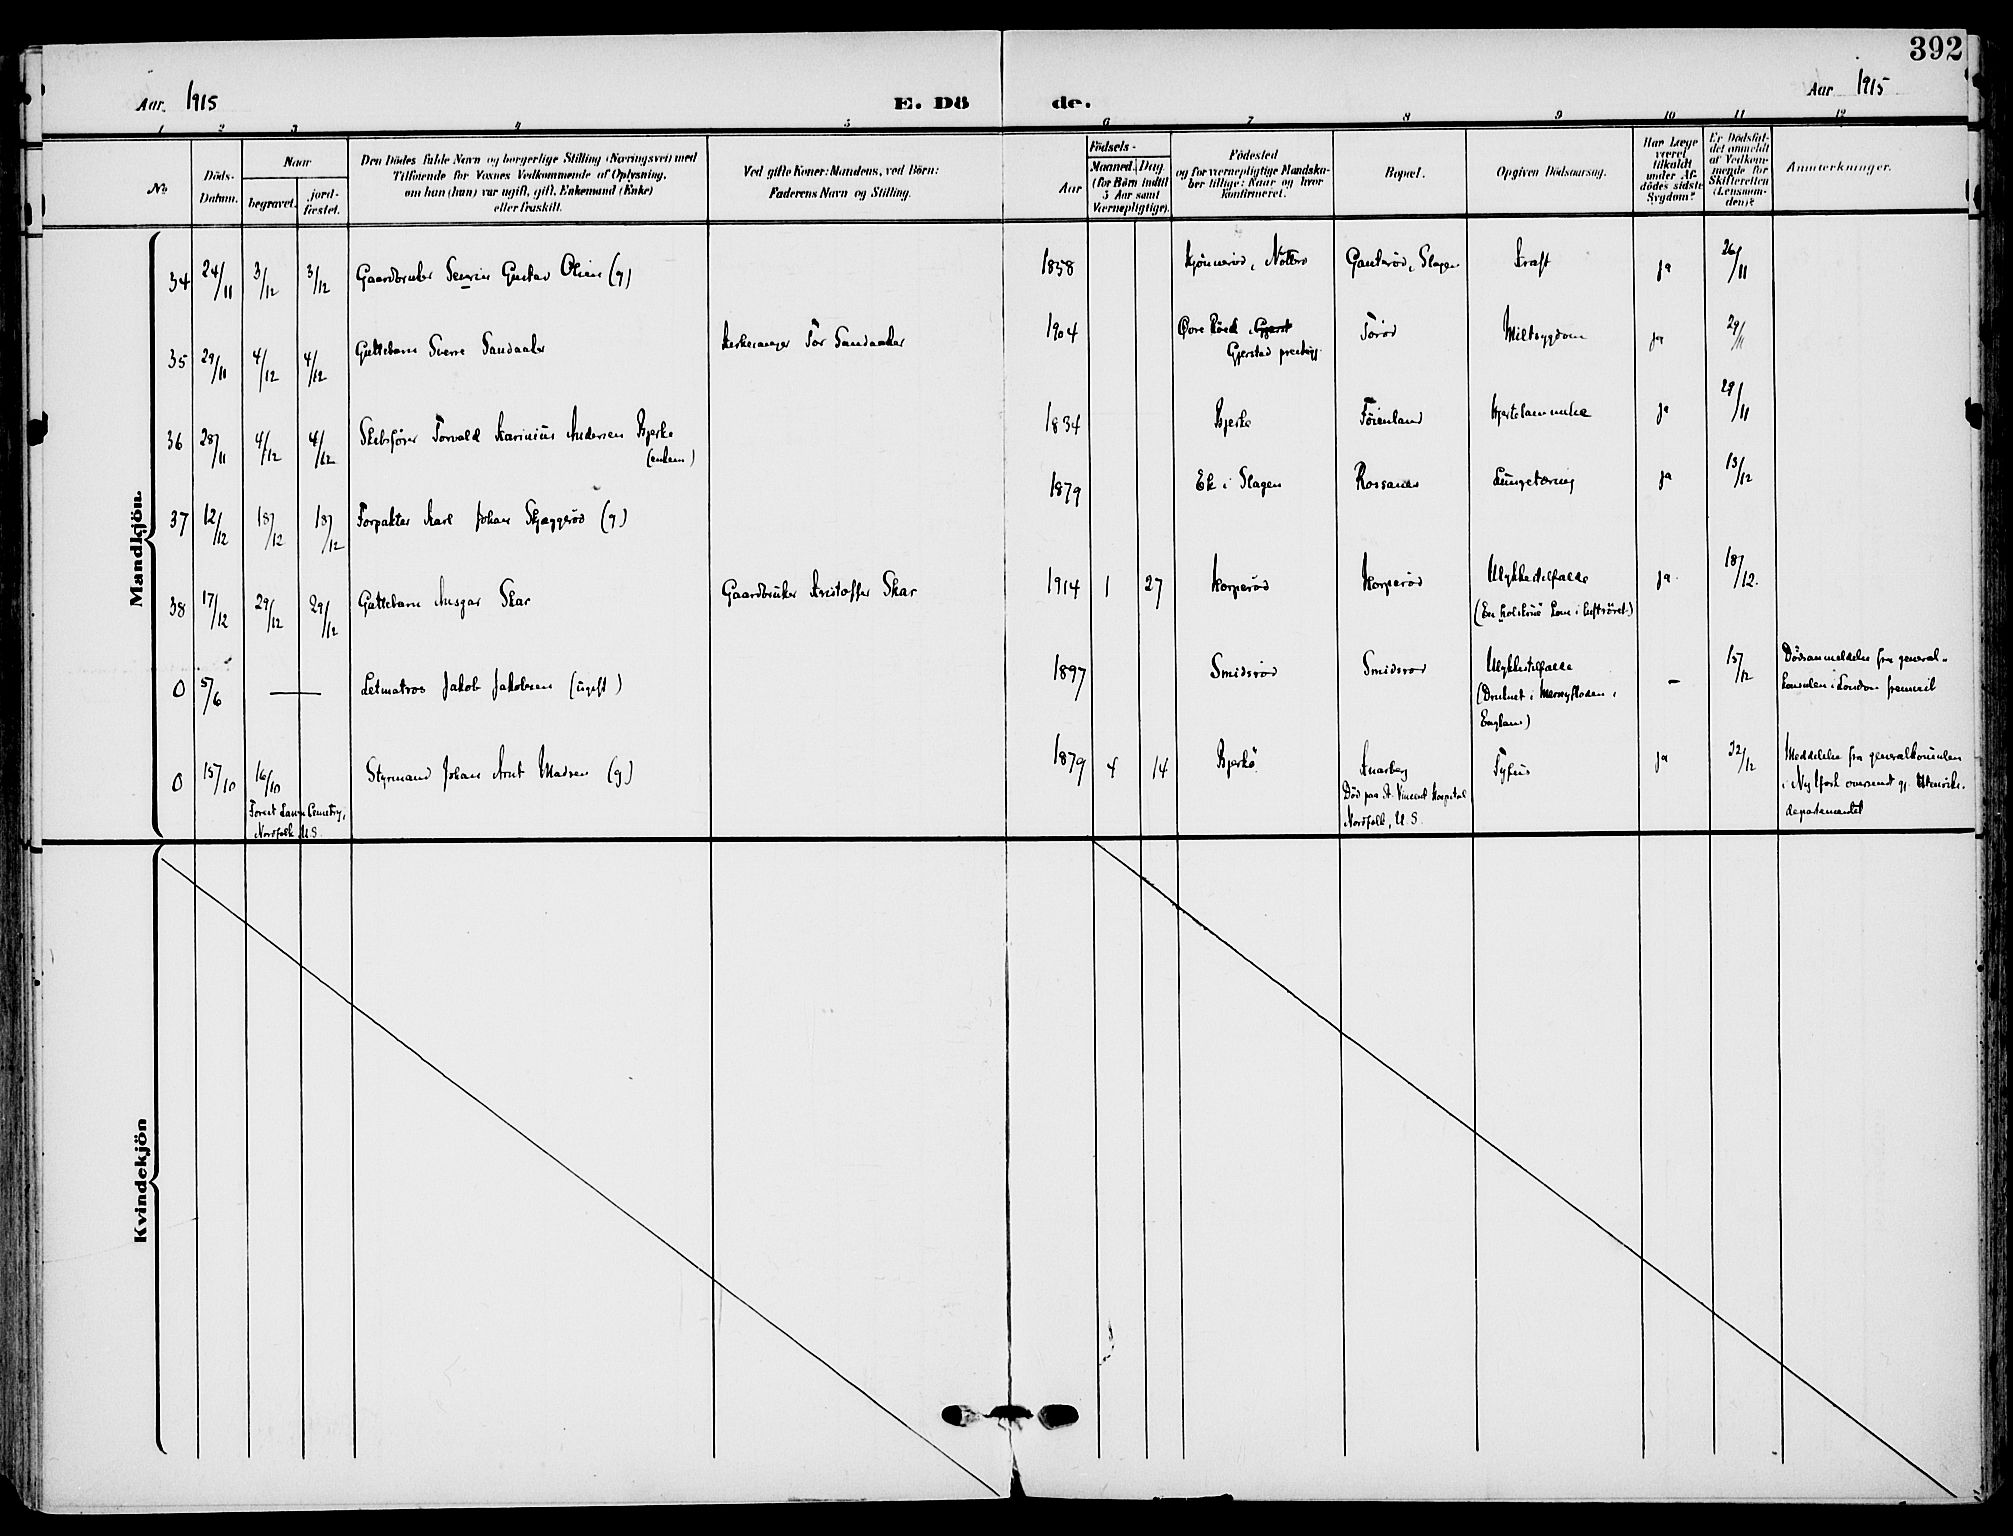 392
Aar. 1915 E. Dö de. Aar 1915
1 2 3 4 5 6 7 8 9 10 11 12
No.
Döds-
Datum.
Naar
begravet.
jord-
fæstet.
Den Dödes fulde Navn og borgerlige Stilling (Næringsvei) med
Tilföiende for Voxnes Vedkommende af Oplysning,
om hun (han) var ugift, gift, Enkemand (Enke)
eller fraskilt.
Ved gifte Koner: Mandens, ved Börn:
Faderens Navn og Stilling.
Födsels-
Aar
Maaned. Dag.
(for Börn indtil
5 Aar samt
Værnepligtige).
Födested
og for værnepligtige Mandska-
ber tillige: Naar og hvor
konfirmeret.
Bopæl.
Opgiven Dödsaarsag.
Har Læge
været
tilkaldt
under Af-
dödes sidste
Sygdom?
Er Dödsfal-
det anmeldt
af Vedkom-
mende for
Skifteretten
(Lensman-
den)?
Anmærkninger.
Mandkjön.
34 24/11 3/12 3/12 Gaardbruker Severin Gustav Olsen (g) 1858 Kjönnerød, Nøttrø Ganterød, Slagen Kræft ja 26/11
35 29/11 4/12 4/12 Guttebarn Sverre Sandaaker Kirkesanger Tor Sandaaker 1904
Gjerstad prestegj. Torød Miltsygdom ja 29/11
36 28/11 4/12 4/12 Skibsfører Torvald Karinius Andersen Bjerke
(enkem) 1834 Bjerke Føienland Hjertelammelse ja 29/11
37 12/12 18/12 18/12 Forpakter Karl Johan Skjæggerød (g) 1879 Ek i Slagen Rossanes Lungetæring ja 13/12
38 17/12 29/12 29/12 Guttebarn Ansgar Skar Gaardbruker Kristoffer Skar 1914 1 27 Korperød Korperød Ulykkestilfælde
(En kom i luftrøret.) ja 18/12.
0 5/6 — Letmatros Jakob Jakobsen (ugift) 1897 Smidsrød Smidsrød Ulykkestilfælde
(Druknet i Merseyfloden i
England) – 15/12 Dødsanmeldelse fra general-
konsulen i London fremveil
0 15/10 16/10 Styrmand Johan Arnt Madsen (g) 1879 4 14 Bjerkø Knarberg Tyfus ja /12
Forest Lawn Cemetry,
Norfolk U.S.
Død paa St. Vincent Hospital
Norfolk, U.S.
Meddelelse fra generalkonsulen
i New York oversendt gj. Utenriks-
departementet
Kvindekjön